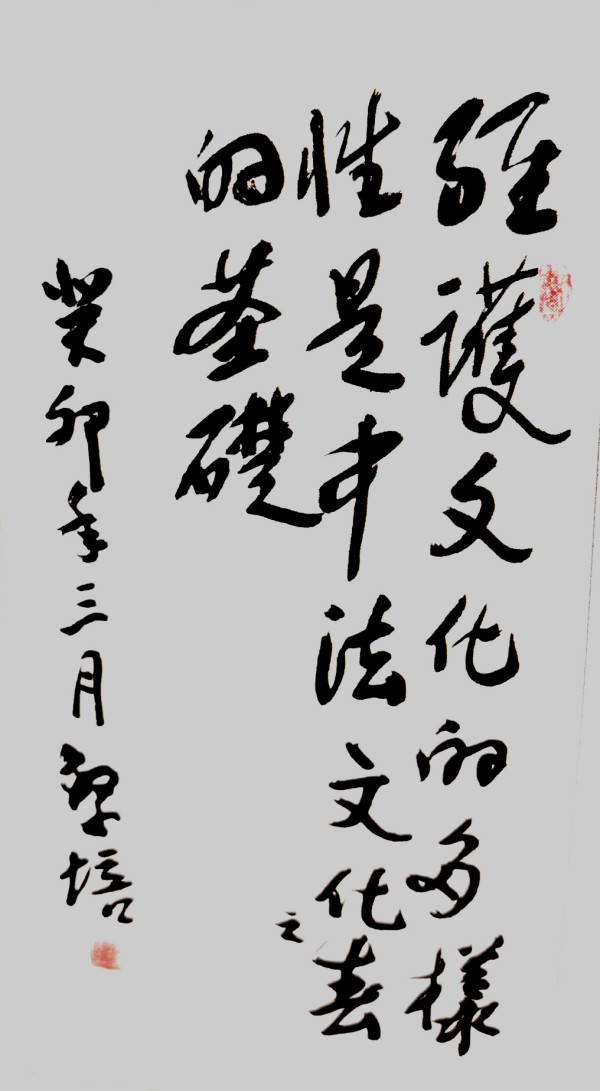 維護文化的多樣
性是中法文化春
之
的基礎
癸卯年三月黎培